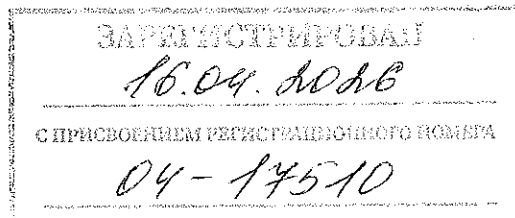 ЗАРЕГИСТРИРОВАН
16.04.2026
С ПРИСВОЕНИЕМ РЕГИСТРАЦИОННОГО НОМЕРА
04-17510